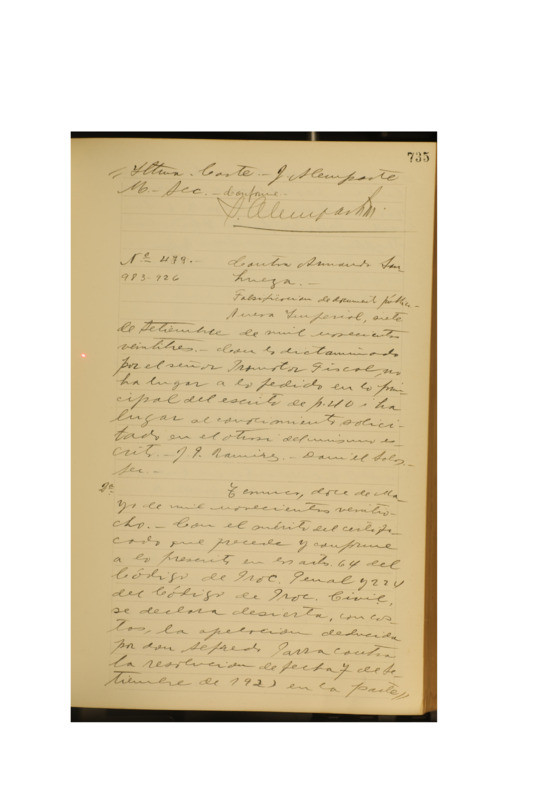 735
Iltma. Corte. - J Alemparte
M. - Sec. - Conforme.
J. Alemparte M.
Nº 479. - Contra Armando San
983-926 hueza. -
Falsificacion de documento público.
Nueva Imperial, siete
de Setiembre de mil novecientos
veintitres. - Con lo dictaminado
por el señor Promotor Fiscal, no
ha lugar a lo pedido en lo prin-
cipal del escrito de f. 40 i ha
lugar al conocimiento solici-
tado en el otrosi del mismo es-
crito. - J. P. Ramirez. - Daniel
2º Temuco, doce de Ma-
yo de mil novecientos veintio-
cho. - Con el mérito del certifi-
cado que precede y conforme
a lo prescrito en los arts. 64 del
Código de Proc. Penal y 224
del Código de Proc. Civil,
se declara desierta, con cos-
tas, la apelacion deducida
por don Alfredo Parra contra
la resolucion de fecha 7 de Se-
tiembre de 1923 en la parte